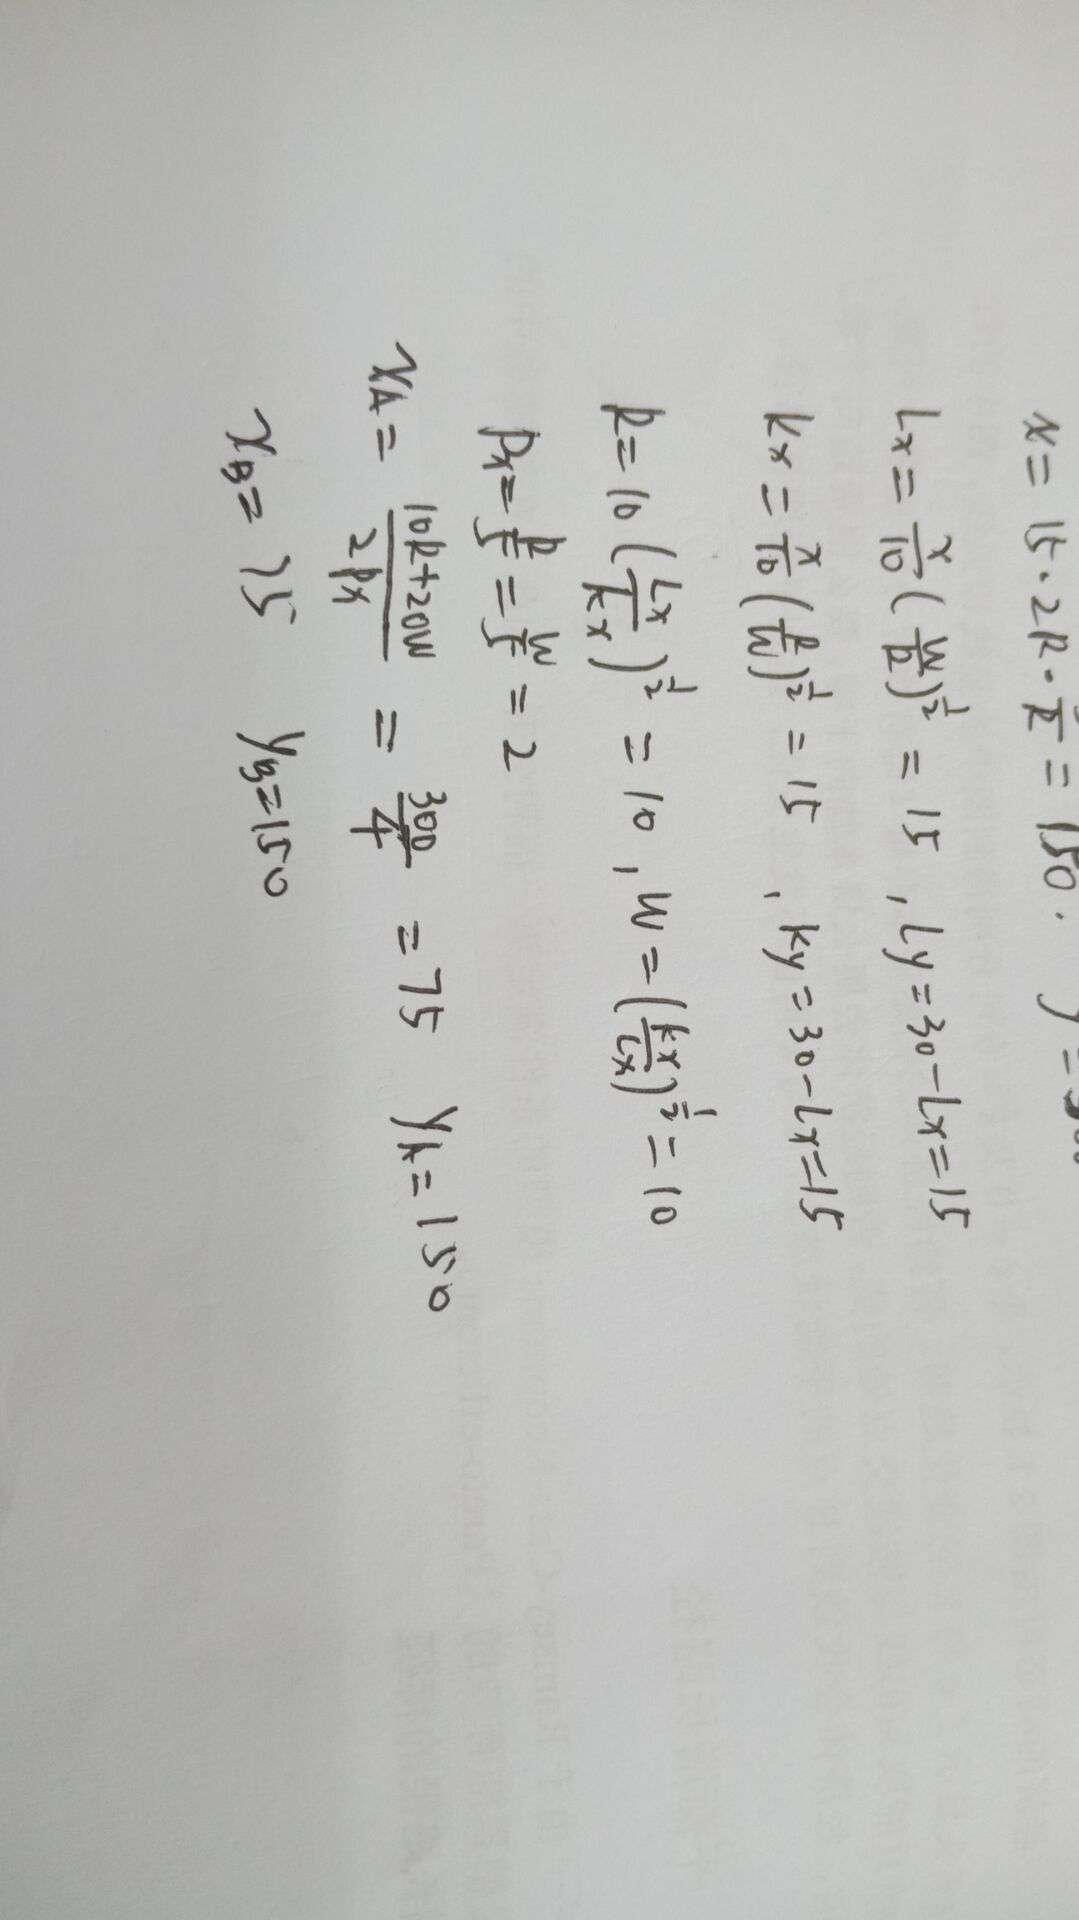 x = 15·2R·5/R = 150. y = 300
Lx = x/10 (W/R)^1/2 = 15 , Ly = 30-Lx = 15
Kx = x/10 (R/W)^1/2 = 15 , Ky = 30-Lx = 15
R = 10 (Lx/Kx)^1/2 = 10 , W = (Kx/Lx)^1/2 = 10
Px = R/5 = W/5 = 2
xA = (10R+20W)/2Px = 300/4 = 75 YA = 150
xB = 75 YB = 150